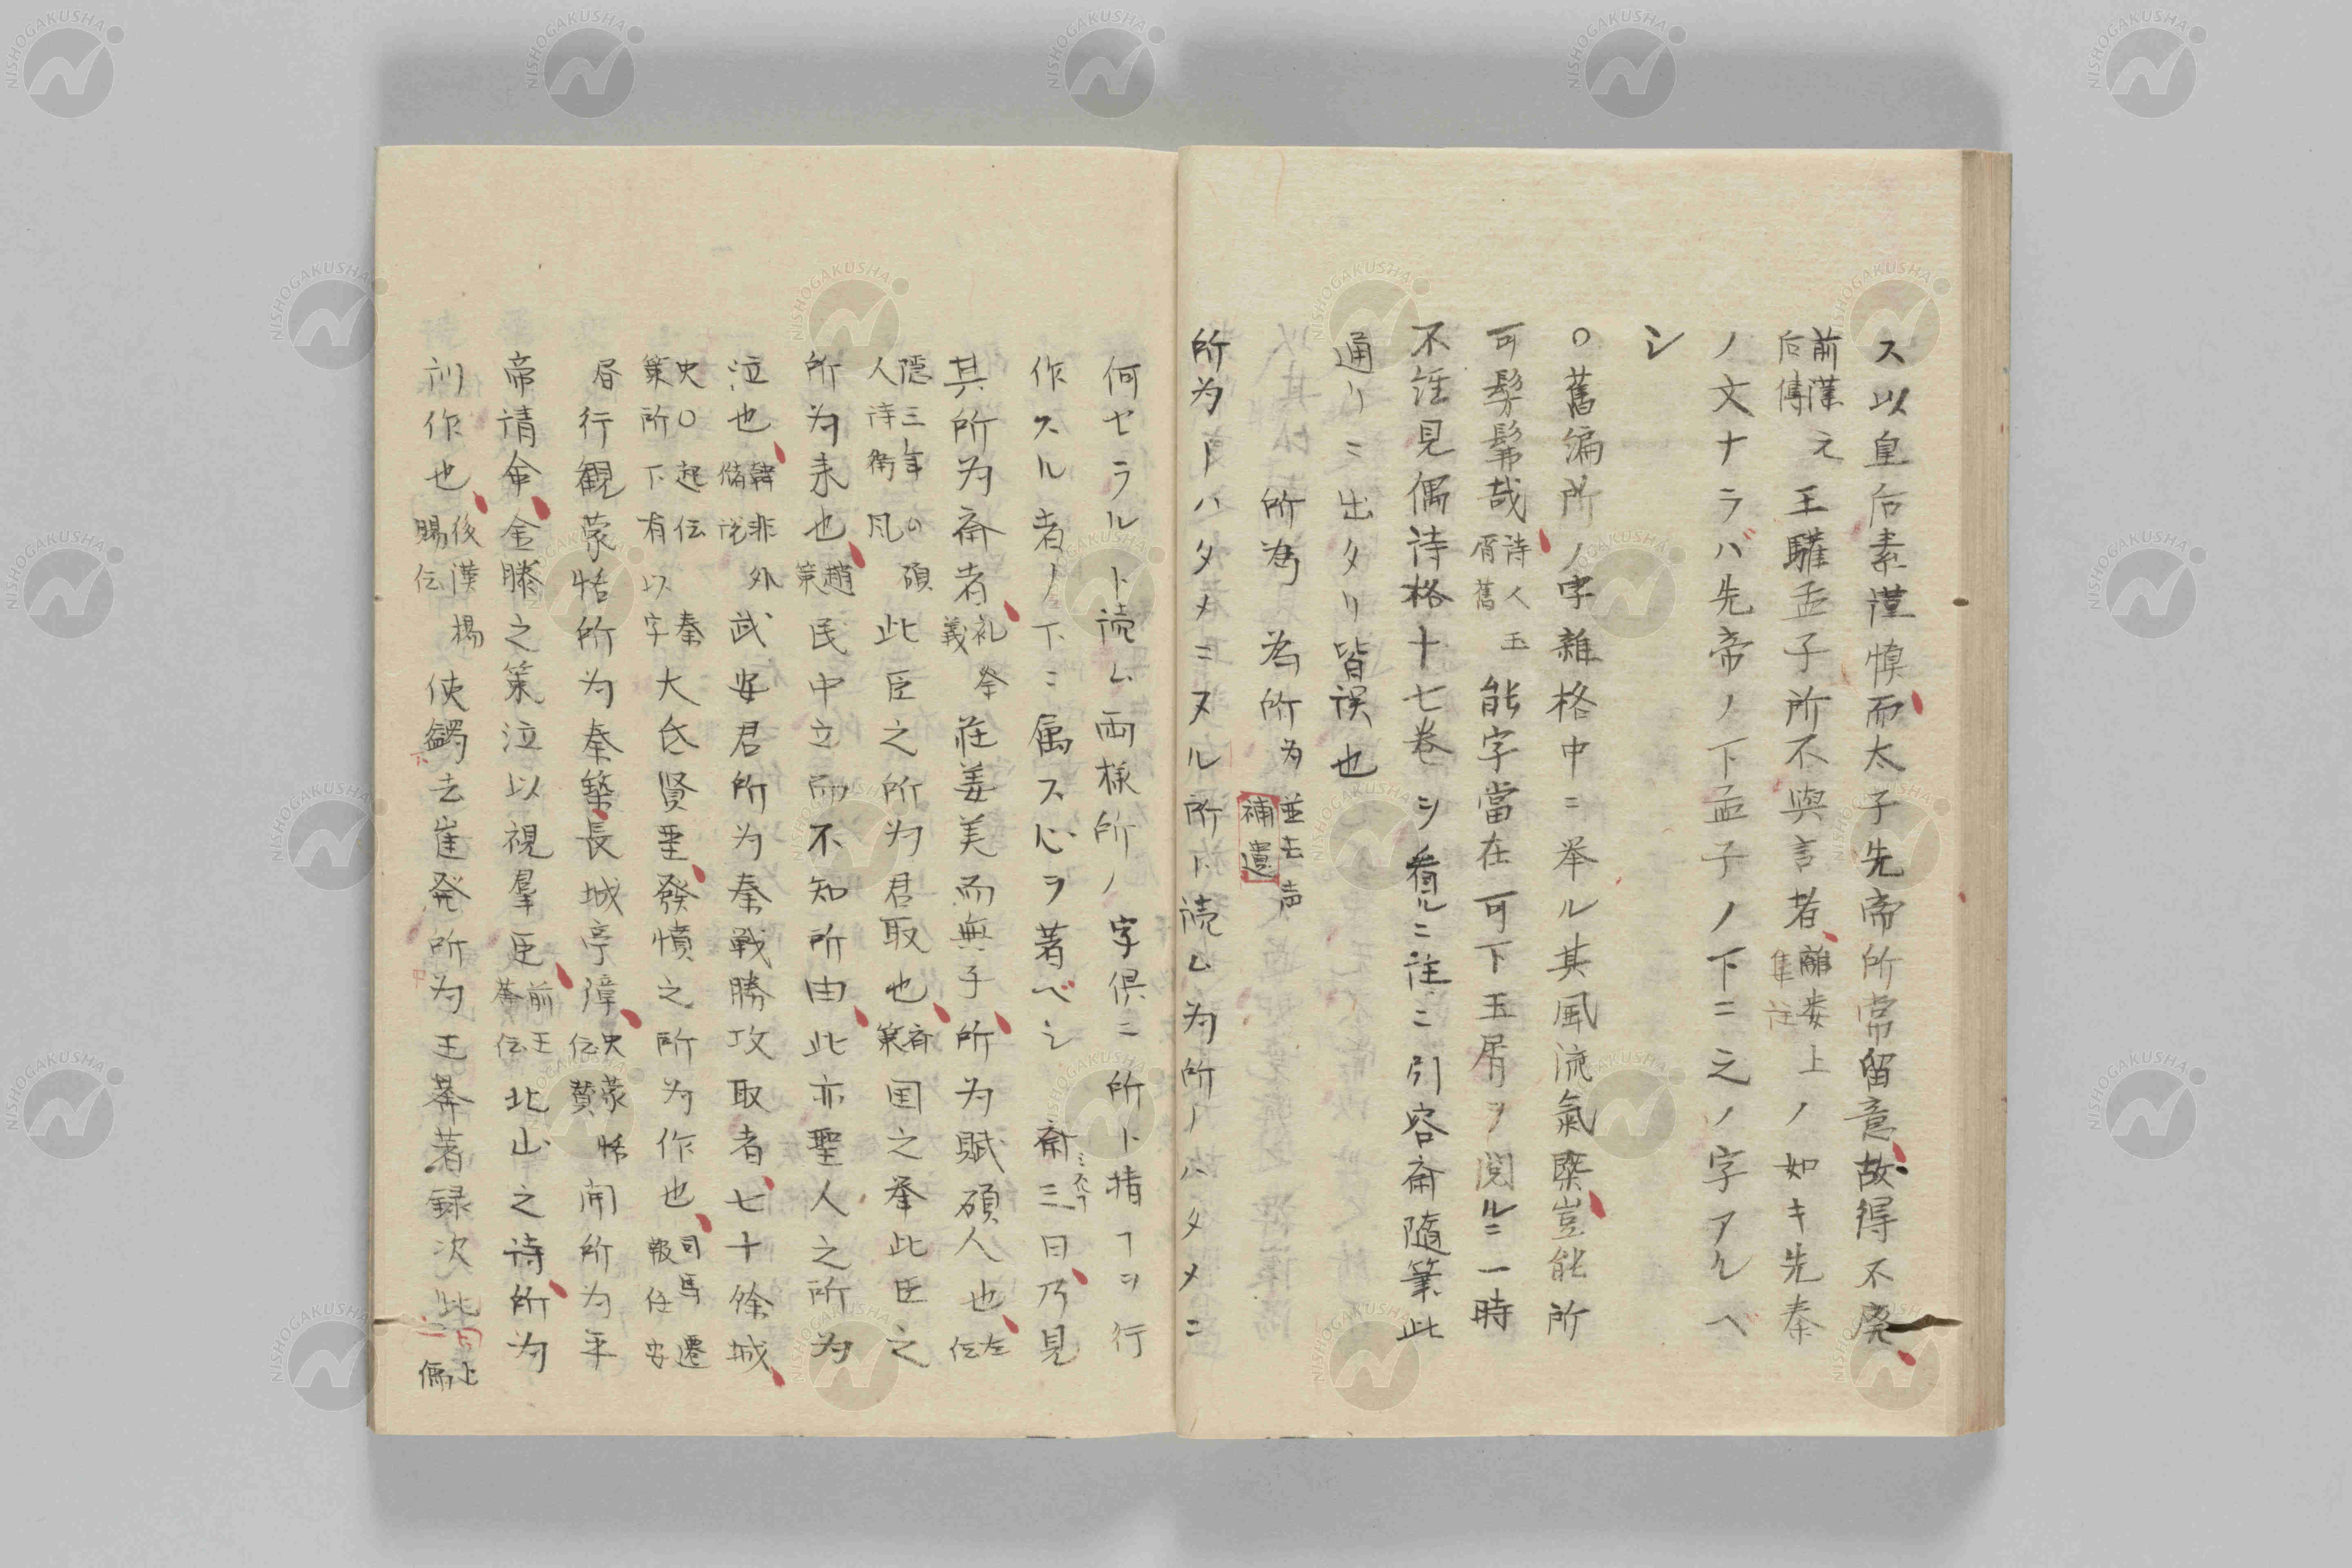 ス以皇后素謹愼而太子先帝所常留意故得不廃
前漢后傳 元王驩孟子所不與言者離婁上集注ノ如キ先秦
ノ文ナラバ先帝ノ下孟子ノ下ニ之ノ字アルベ
シ
○舊編所ノ字雜格中ニ挙ル其風流氣槩豈能所
可髣髴哉詩人玉屑舊能字當在可下玉屑ヲ閲ルニ一時
不註見偶詩格十七巻ヲ看ルニ註ニ引容斎随筆此
通リニ出タリ皆誤也
所為 為所為並去声補遺
所为トハタメニスル所ト読ム为所ノハタメニ
何セラルト読ム両様所ノ字倶ニ所ト指ヿヲ行
作スル者ノ下ニ属ス心ヲ著ベシ 斎三曰乃見
其所为斎者礼祭義荘姜美而無子所为賦碩人也左伝
隠三年人詩衛凡碩此臣之所为君取也斉策国之挙此臣之
所为来也趙策民中立而不知所由此亦聖人之所为
泣也韓非外儲説武安君所为秦戦勝攻取者七十餘城
史○起伝秦策所下有以字大氐賢聖發憤之所为作也司馬遷報任安
居行観蒙恬所为秦築長城亭障史蒙恬伝賛開所为平
帝請命金縢之策泣以視羣臣前王莽伝北山之詩所为
訓作也後漢楊賜伝使鐲去崔発所为王莽著録次此上儒